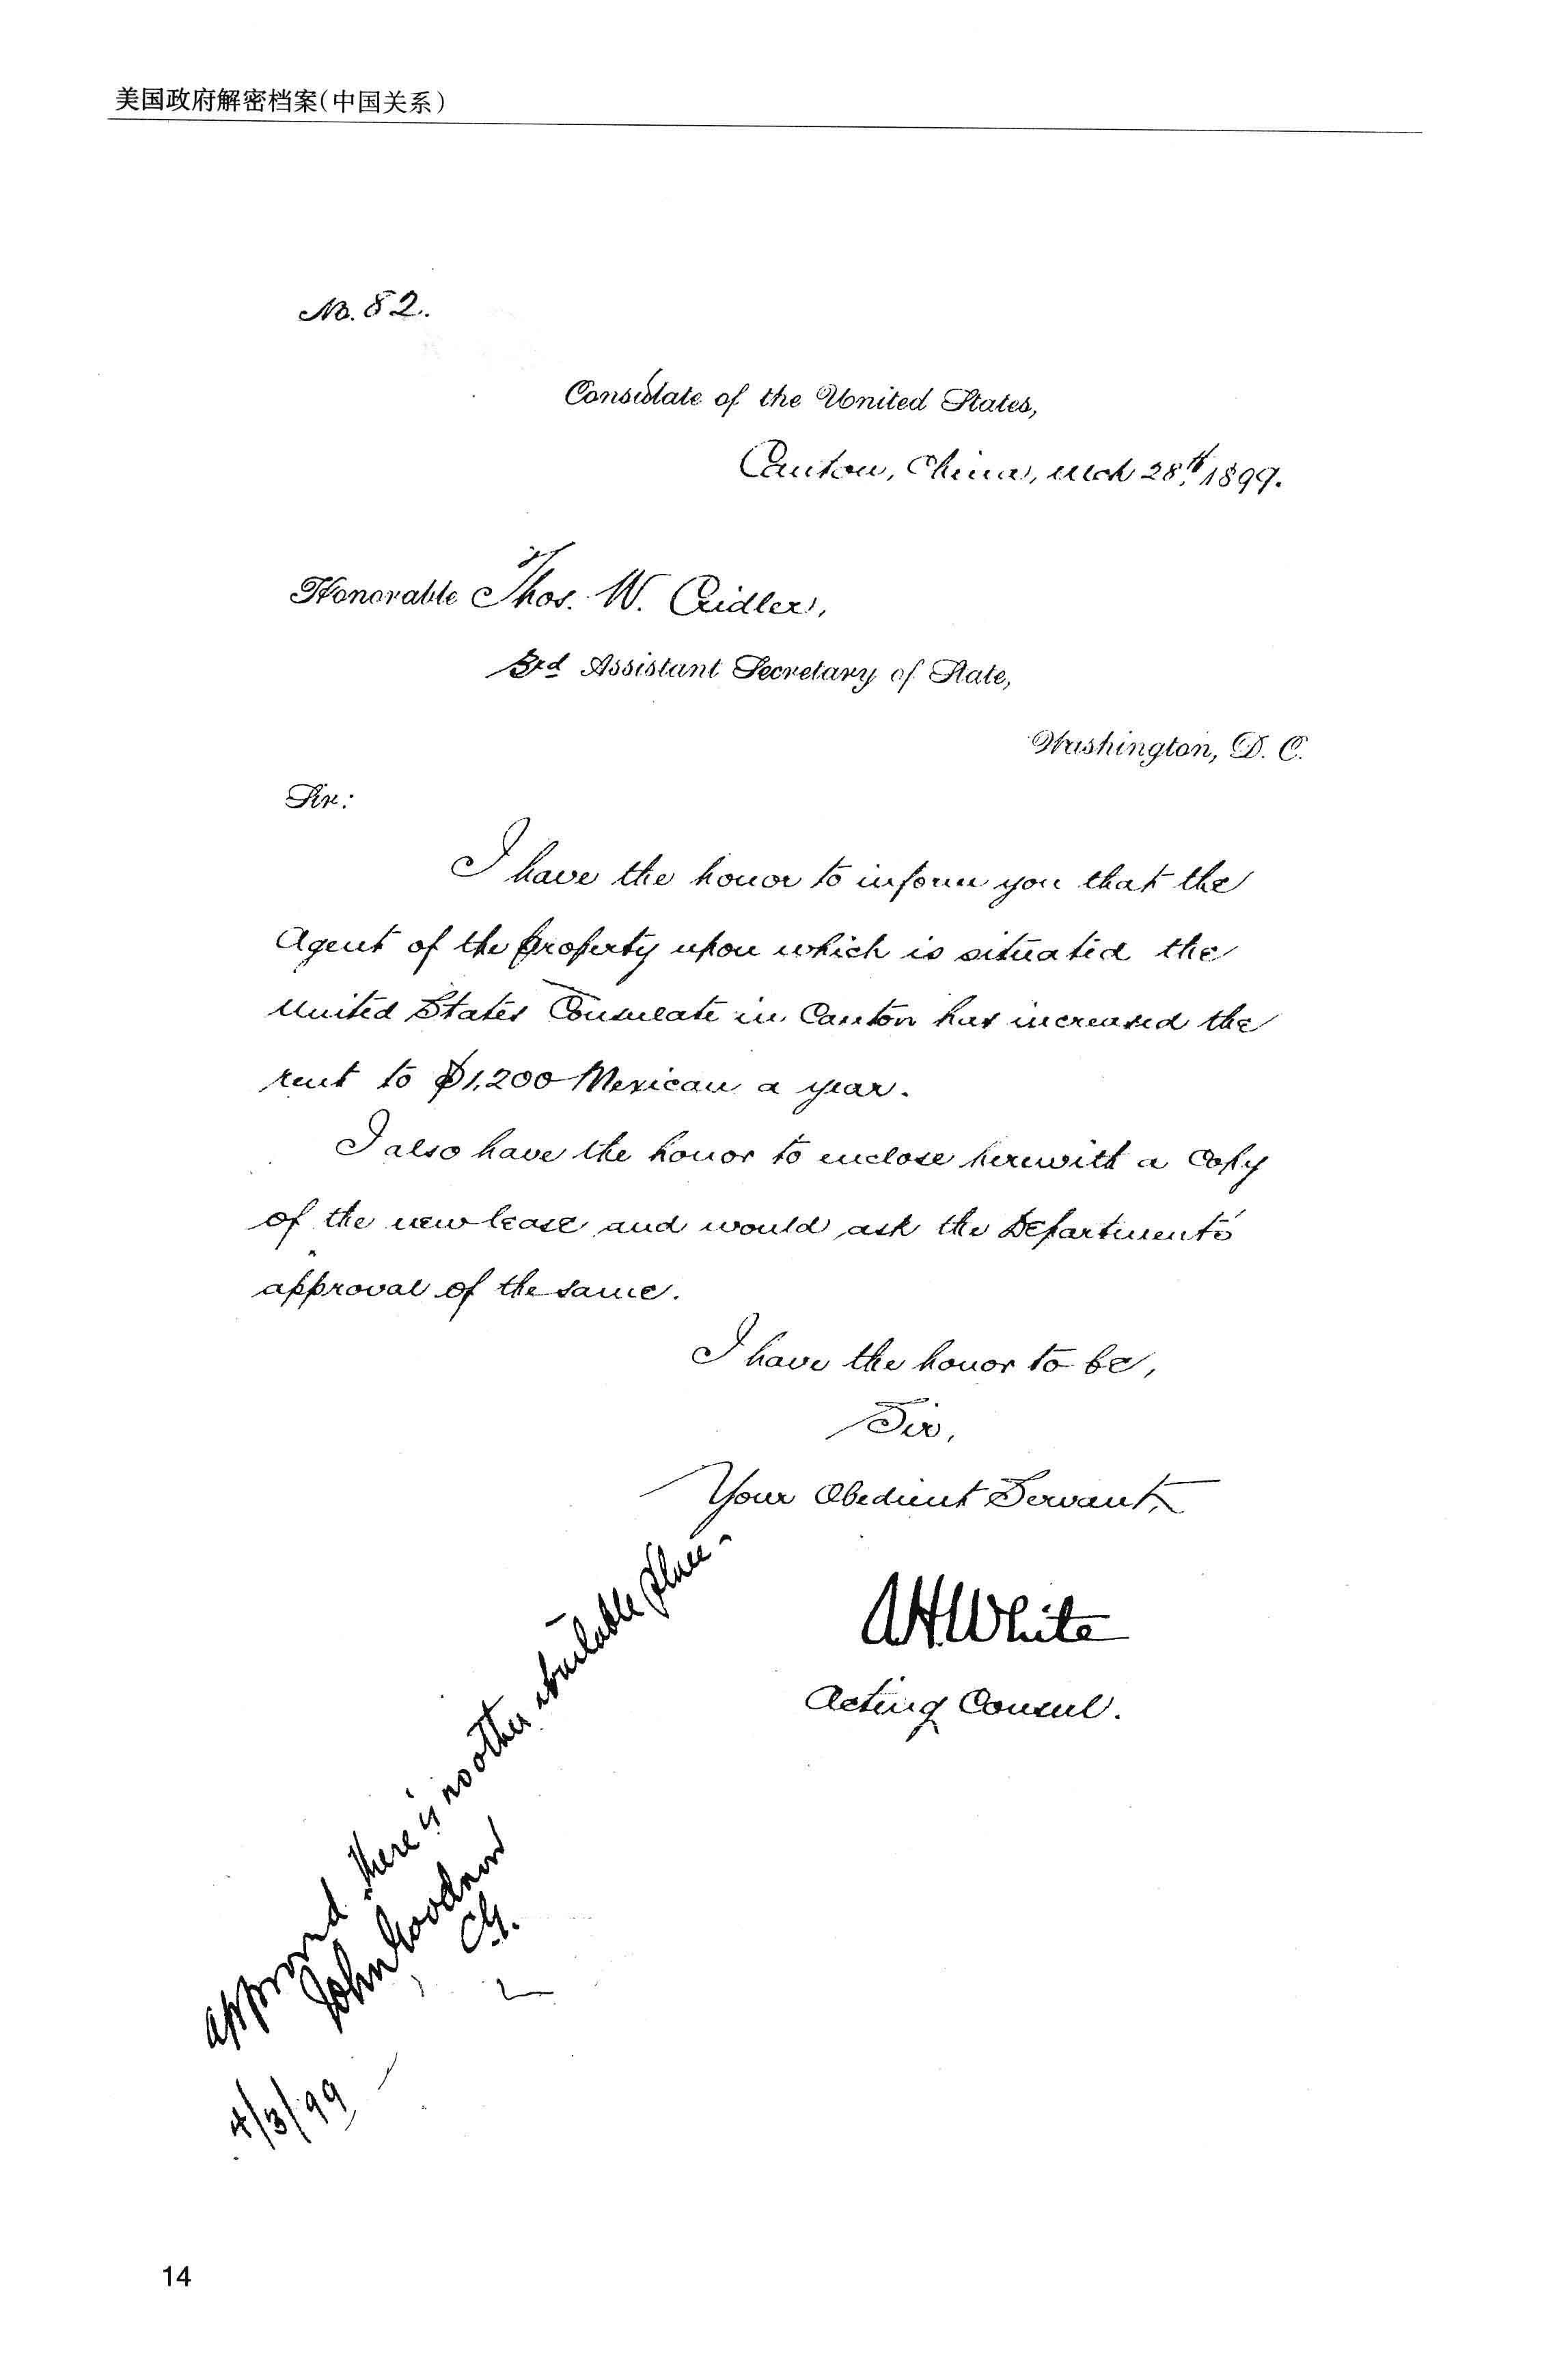 美国政府解密档案(中国关系)
No. 82.
Consulate of the United States,
Canton, China, Mch 28th, 1899.
Honorable Thos. W. Cridler,
3rd Assistant Secretary of State,
Washington, D. C.
Sir:
I have the honor to inform you that the
Agent of the property upon which is situated the
United States Consulate in Canton has increased the
rent to $1,200 Mexican a year.
I also have the honor to enclose herewith a Copy
of the new lease and would ask the Department's
approval of the same.
I have the honor to be,
Sir,
Your Obedient Servant,
A H. White
Acting Consul.
approved there is no other available place-
John Goodnow
CG.
4/3/99
14